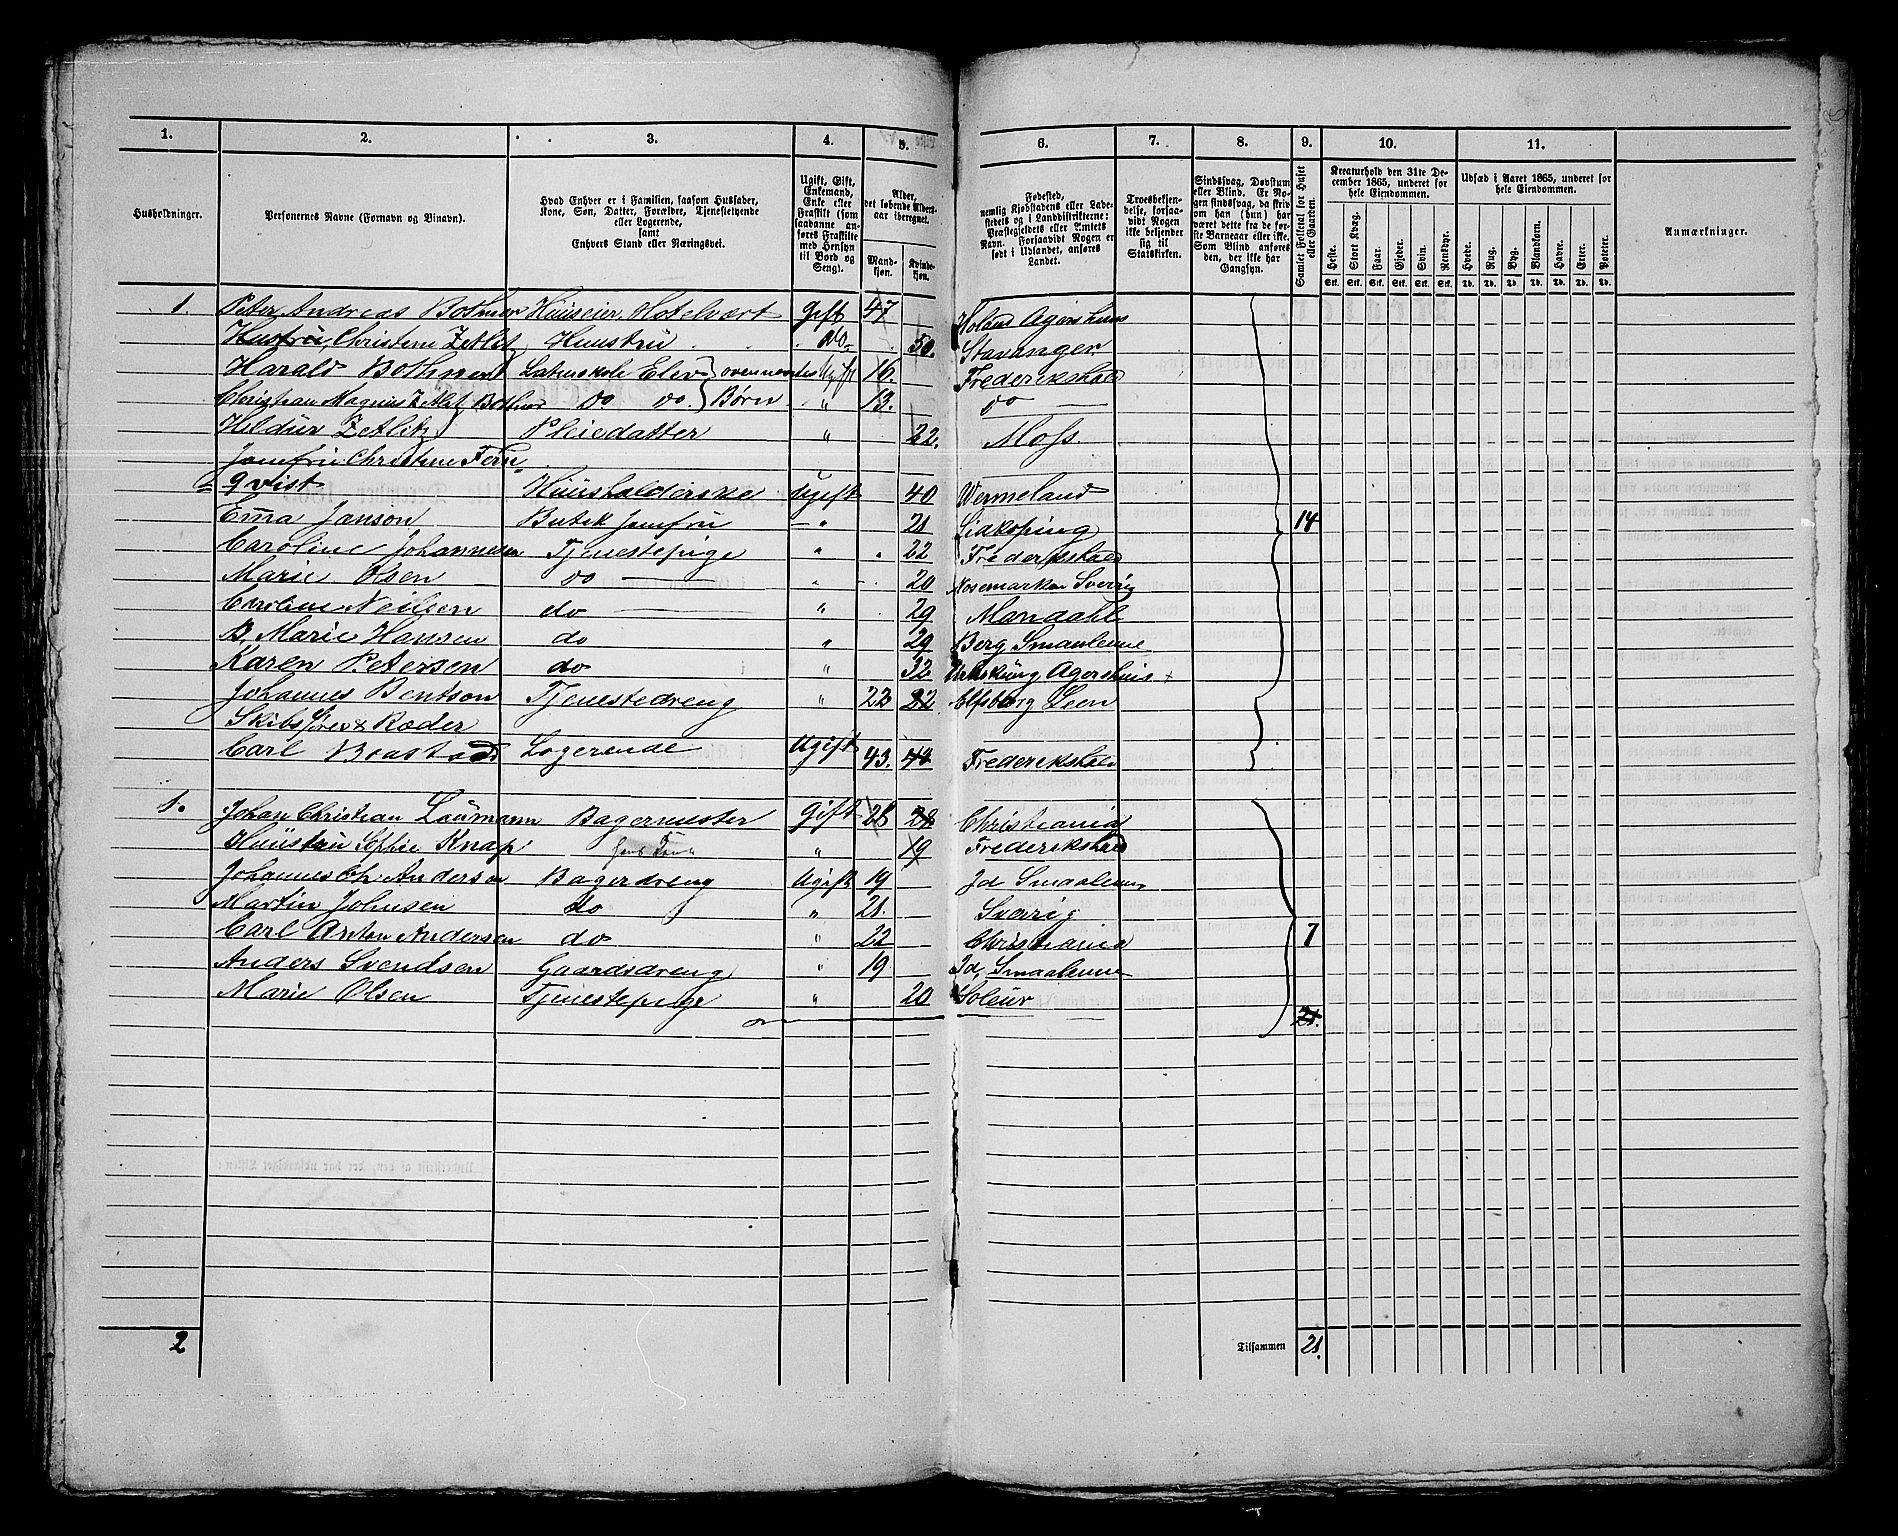 1. 2. 3. 4. 5. 6. 7. 8. 9. 10. 11.
Husholdninger.
Personernes Navne (Fornavn og Binavn).
Hvad Enhver er i Familien, saasom Husfader, Kone, Søn, Datter, Forældre, Tjenestetyende eller Logerende, samt Enhvers Stand eller Næringsvei.
Ugift, Gift, Enkemand, Enke eller Fraskilt (som saadanne anføres Fraskilte med Hensyn til Bord og Seng).
Alder, det løbende Alders-aar iberegnet.
Mand-kjøn. Kvinde-kjøn.
Fødested, nemlig Kjøbstadens eller Ladestedets og i Landdistrikterne: Præstegjeldets eller Amtets Navn. Forsaavidt Nogen er født i Udlandet, anføres Landet.
Troesbekjendelse, forsaavidt Nogen ikke bekjender sig til Statskirken.
Sindssvag, Døvstum eller Blind. Er Nogen sindssvag, da skrives om han (hun) har været dette fra de første Barneaar eller ikke. Som Blind anføres den, der ikke har Gangsyn.
Samlet Folketal for Huset eller Gaarden.
Kreaturhold den 31te December 1865, underet for hele Eiendommen.
Heste. Stort Kvæg. Faar. Gjeder. Svin. Rensdyr.
Udsæd i Aaret 1865, underet for hele Eiendommen.
Hvede. Rug. Byg. Blandkorn. Havre. Erter. Poteter.
Anmærkninger.
Stk. Stk. Stk. Stk. Stk. Stk. Td. Td. Td. Td. Td. Td. Td.
1. Peter Andreas Bothner Huuseier, Hotelvært Gift 47 Høland Agershuus
Hustru, Christine Zetlitz Huustru do 50. Stavanger.
Harald Bothner Latinskole Elev ovennævntes Ugift 16. Frederikshald
Christian Magnus Zetlitz Bothner do do Børn " 13. do
Heldur Zetlitz Pleiedatter " 22. Moss.
Jomfru Christine Fern=
=qvist Huusholderske Ugift 40 Wermeland
Emma Janson Butik Jomfru " 21 Lidkøping 14
Caroline Johannesen Tjenestepige " 22 Frederikshald
Marie Olsen do " 20 Nosemarken Sverig
Caroline Neilsen do " 29 Mandahl
B. Marie Hansen do " 29 Berg Smaalenene
Karen Petersen do " 32 Urskoug Agershuus
Johannes Bentson Tjenestedreng " 22 22 Elfsborg Leen
Skibsfører & Reder
Carl Brastad Logerende Ugift 43. 43 Frederikshald
1. Johan Christian Laumann Bagermester Gift 28 28 Christiania
Huustru Sophie Knap " 19 Frederikshald
Johannes Chr. Andersen Bagerdreng Ugift 19 Id Smaalenene
Martin Johnsen do " 21. Sverig
Carl Anton Andersen do " 22 Christiania 7
Anders Svendsen Gaardsdreng " 19 Id, Smaalenene
Marie Olsen Tjenestepige " 20 Soleur
21.
2 Tilsammen 21.